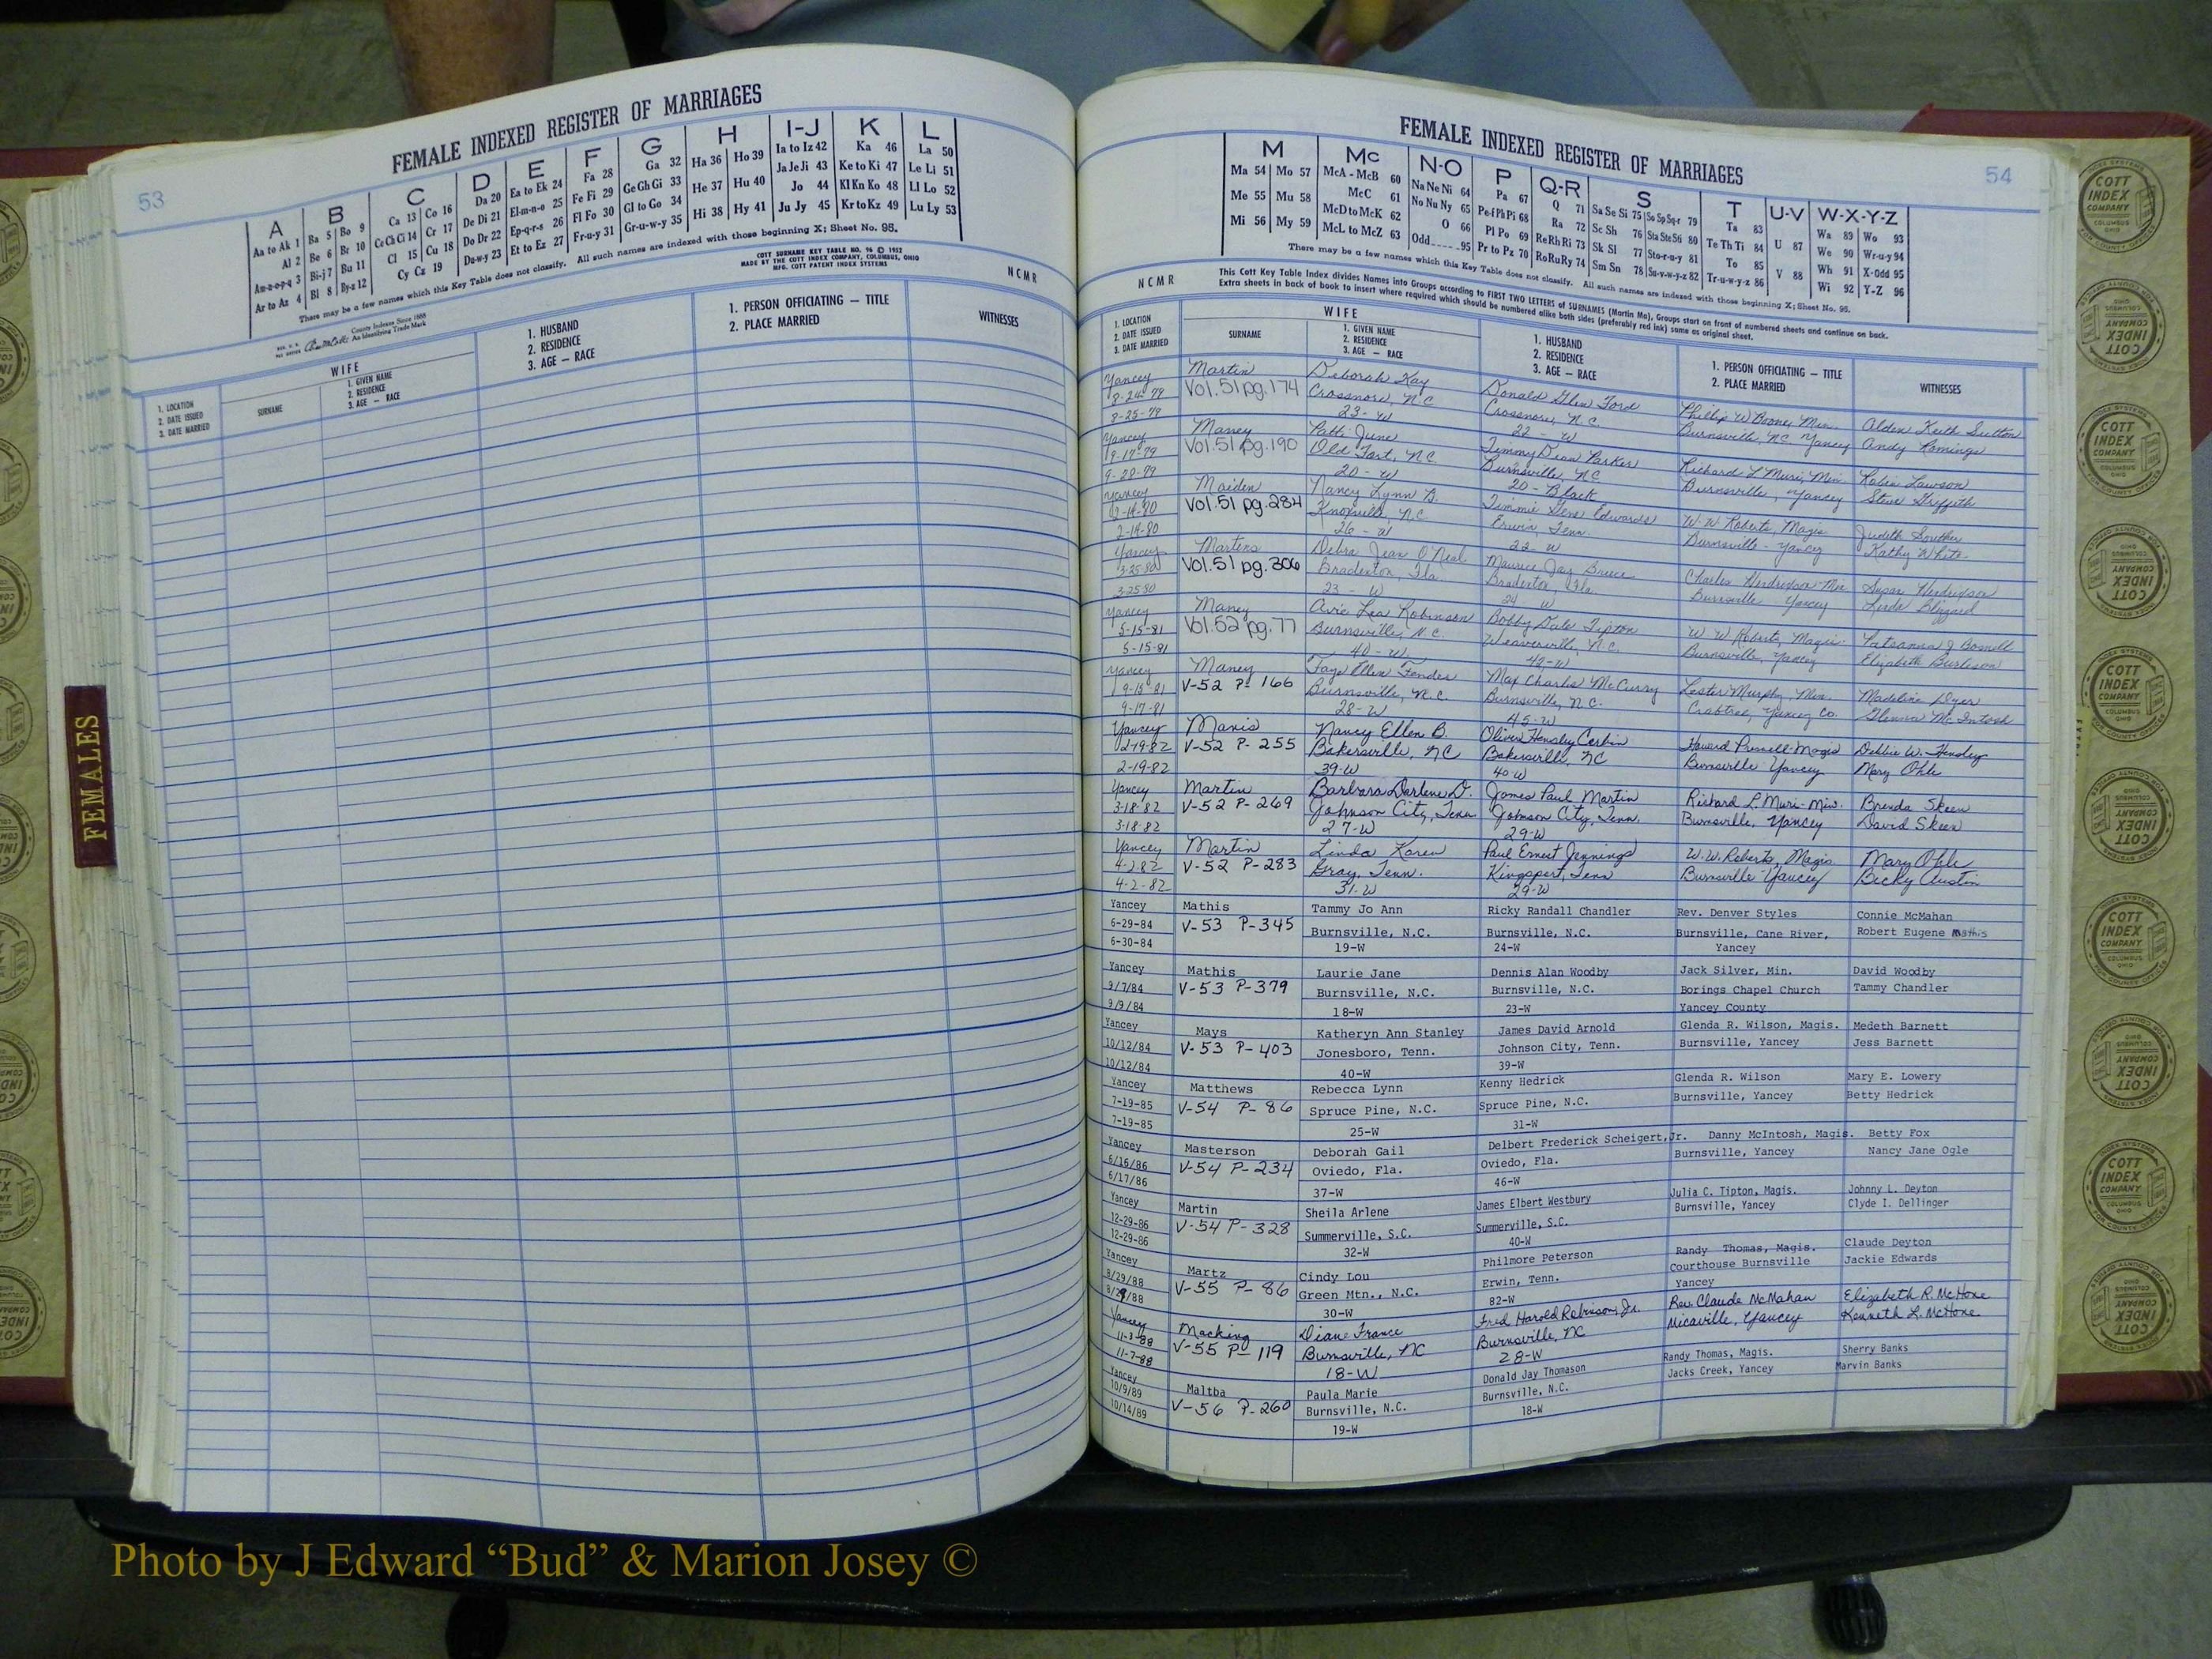 FEMALE INDEXED REGISTER OF MARRIAGES
53
A B C D E F G H I-J K L
Aa to Ak 1 Ba 5 Bo 9 Ca 13 Co 16 Da 20 Ea to Ek 24 Fa 28 Ga 32 Ha 36 Ho 39 Ia to Iz 42 Ka 46 La 50
Al 2 Be 6 Br 10 Ce Ch Ci 14 Cr 17 De Di 21 El-m-n-o 25 Fe Fi 29 Ge Gh Gi 33 He 37 Hu 40 Ja Je Ji 43 Ke to Ki 47 Le Li 51
Am-n-o-p-q 3 Bi-j 7 Bu 11 Cl 15 Cu 18 Do Dr 22 Ep-q-r-s 26 Fl Fo 30 Gl to Go 34 Hi 38 Hy 41 Jo 44 Kl Kn Ko 48 Ll Lo 52
Ar to Az 4 Bl 8 By-z 12 Cy Cz 19 Du-w-y 23 Et to Ez 27 Fr-u-y 31 Gr-u-w-y 35 Ju Jy 45 Kr to Kz 49 Lu Ly 53
There may be a few names which this Key Table does not classify. All such names are indexed with those beginning X; Sheet No. 95.
COTT SURNAME KEY TABLE NO. 96 © 1952
MADE BY THE COTT INDEX COMPANY, COLUMBUS, OHIO
MFG. COTT PATENT INDEX SYSTEMS
NCMR
County Indexes Since 1888
An Identifying Trade Mark
1. LOCATION
2. DATE ISSUED
3. DATE MARRIED
WIFE
SURNAME
1. GIVEN NAME
2. RESIDENCE
3. AGE — RACE
1. HUSBAND
2. RESIDENCE
3. AGE — RACE
1. PERSON OFFICIATING — TITLE
2. PLACE MARRIED
WITNESSES
FEMALES
FEMALE INDEXED REGISTER OF MARRIAGES
54
M Mc N-O P Q-R S T U-V W-X-Y-Z
Ma 54 Mo 57 McA - McB 60 Na Ne Ni 64 Pa 67 Q 71 Sa Se Si 75 So Sp Sq-r 79 Ta 83 Wa 89 Wo 93
Me 55 Mu 58 McC 61 No Nu Ny 65 Pe-f Ph Pi 68 Ra 72 Sc Sh 76 Sta Ste Sti 80 Te Th Ti 84 U 87 We 90 Wr-u-y 94
Mi 56 My 59 McD to McK 62 O 66 Pl Po 69 Re Rh Ri 73 Sk Sl 77 Sto-r-u-y 81 To 85 Wh 91 X-Odd 95
McL to McZ 63 Odd 95 Pr to Pz 70 Ro Ru Ry 74 Sm Sn 78 Su-v-w-y-z 82 Tr-u-w-y-z 86 V 88 Wi 92 Y-Z 96
There may be a few names which this Key Table does not classify. All such names are indexed with those beginning X; Sheet No. 95.
NCMR
This Cott Key Table Index divides Names into Groups according to FIRST TWO LETTERS of SURNAMES (Martin Ma), Groups start on front of numbered sheets and continue on back.
Extra sheets in back of book to insert where required which should be numbered alike both sides (preferably red ink) same as original sheet.
1. LOCATION
2. DATE ISSUED
3. DATE MARRIED
WIFE
SURNAME
1. GIVEN NAME
2. RESIDENCE
3. AGE — RACE
1. HUSBAND
2. RESIDENCE
3. AGE — RACE
1. PERSON OFFICIATING — TITLE
2. PLACE MARRIED
WITNESSES
Yancey Martin Deborah Kay Donald Glen Ford Phillip W Boone, Min. Alden Keith Sutton
8-24-79 Vol.51 pg.174 Crossnore, N C Crossnore, N.C. Burnsville, NC Yancey Andy Comings
8-25-79 23 - W 22 - W
Yancey Maney Patti June Timmy Dean Parker Richard L Muri, Min. Robin Lawson
9-17-79 Vol.51 pg.190 Old Fort, N.C. Burnsville, NC Burnsville, Yancey Steve Griffith
9-28-79 20 - W 20 - Black
Yancey Maiden Nancy Lynn B. Jimmie Gene Edwards W W Roberts, Magis Judith Souther
2-14-80 Vol.51 pg.284 Knoxville, NC Erwin, Tenn. Burnsville - Yancey Kathy White
2-14-80 26 - W 22 - W
Yancey Martens Debra Jean O'Neal Maurice Jay Bruce Charles Hendrickson Min Susan Hendrickson
3-25-80 Vol.51 pg.306 Bradenton, Fla. Bradenton, Fla. Burnsville Yancey Linda Blizzard
3-25-80 23 - W 24 W
Yancey Maney Avie Lea Robinson Bobby Dale Tipton W W Roberts, Magis.
5-15-81 Vol.52 pg.77 Burnsville, N.C. Weaverville, N.C. Burnsville, Yancey Elizabeth Burleson
5-15-81 40 - W 42-W
Yancey Maney Faye Ellen Fender Max Charles McCurry Lester Murphy, Min. Madeline Dyer
9-15-81 V-52 P- 166 Burnsville, N.C. Burnsville, N.C. Crabtree, Yancey Co. Glenna McIntosh
9-17-81 28-W 45-W
Yancey Manis Nancy Ellen B. Oliver Hensley Corbin Howard Pressell-Magis Debbie W. Hensley
2-19-82 V-52 P- 255 Bakersville, NC Bakersville, NC Burnsville Yancey Mary Ohle
2-19-82 39-W 40 W
Yancey Martin Barbara Darlene D. James Paul Martin Richard L. Muri-Min. Brenda Skeen
3-18-82 V-52 P-269 Johnson City, Tenn. Johnson City, Tenn. Burnsville, Yancey David Skeen
3-18-82 27-W 29-W
Yancey Martin Linda Karen Paul Ernest Jennings W.W. Roberts, Magis. Mary Ohle
4-2-82 V-52 P-283 Gray, Tenn. Kingsport, Tenn Burnsville Yancey Becky Austin
4-2-82 31-W 29-W
Yancey Mathis Tammy Jo Ann Ricky Randall Chandler Rev. Denver Styles Connie McMahan
6-29-84 V-53 P-345 Burnsville, N.C. Burnsville, N.C. Burnsville, Cane River, Robert Eugene Mathis
6-30-84 19-W 24-W Yancey
Yancey Mathis Laurie Jane Dennis Alan Woodby Jack Silver, Min. David Woodby
9/7/84 V-53 P-379 Burnsville, N.C. Burnsville, N.C. Borings Chapel Church Tammy Chandler
9/9/84 18-W 23-W Yancey County
Yancey Mays Katheryn Ann Stanley James David Arnold Glenda R. Wilson, Magis. Medeth Barnett
10/12/84 V-53 P-403 Jonesboro, Tenn. Johnson City, Tenn. Burnsville, Yancey Jess Barnett
10/12/84 40-W 39-W
Yancey Matthews Rebecca Lynn Kenny Hedrick Glenda R. Wilson Mary E. Lowery
7-19-85 V-54 P- 86 Spruce Pine, N.C. Spruce Pine, N.C. Burnsville, Yancey Betty Hedrick
7-19-85 25-W 31-W
Yancey Masterson Deborah Gail Delbert Frederick Scheigert,Jr. Danny McIntosh, Magis. Betty Fox
6/16/86 V-54 P-234 Oviedo, Fla. Oviedo, Fla. Burnsville, Yancey Nancy Jane Ogle
6/17/86 37-W 46-W
Yancey Martin Sheila Arlene James Elbert Westbury Julia C. Tipton, Magis. Johnny L. Deyton
12-29-86 V-54 P-328 Summerville, S.C. Summerville, S.C. Burnsville, Yancey Clyde I. Dellinger
12-29-86 32-W 40-W
Yancey Martz Cindy Lou Philmore Peterson Randy Thomas, Magis. Claude Deyton
8/29/88 V-55 P- 86 Green Mtn., N.C. Erwin, Tenn. Courthouse Burnsville Jackie Edwards
8/29/88 30-W 82-W Yancey
Yancey Macking Diane France Fred Harold Robinson, Jr. Rev. Claude McMahan Elizabeth R. McHone
11-3-88 V-55 P- 119 Burnsville, NC Burnsville, NC Micaville, Yancey Kenneth L. McHone
11-7-88 18-W 28-W
Yancey Maltba Paula Marie Donald Jay Thomason Randy Thomas, Magis. Sherry Banks
10/9/89 V-56 P-260 Burnsville, N.C. Burnsville, N.C. Jacks Creek, Yancey Marvin Banks
10/14/89 19-W 18-W
COTT INDEX COMPANY COLUMBUS OHIO
INDEX SYSTEMS FOR COUNTY OFFICES
Photo by J Edward “Bud” & Marion Josey ©